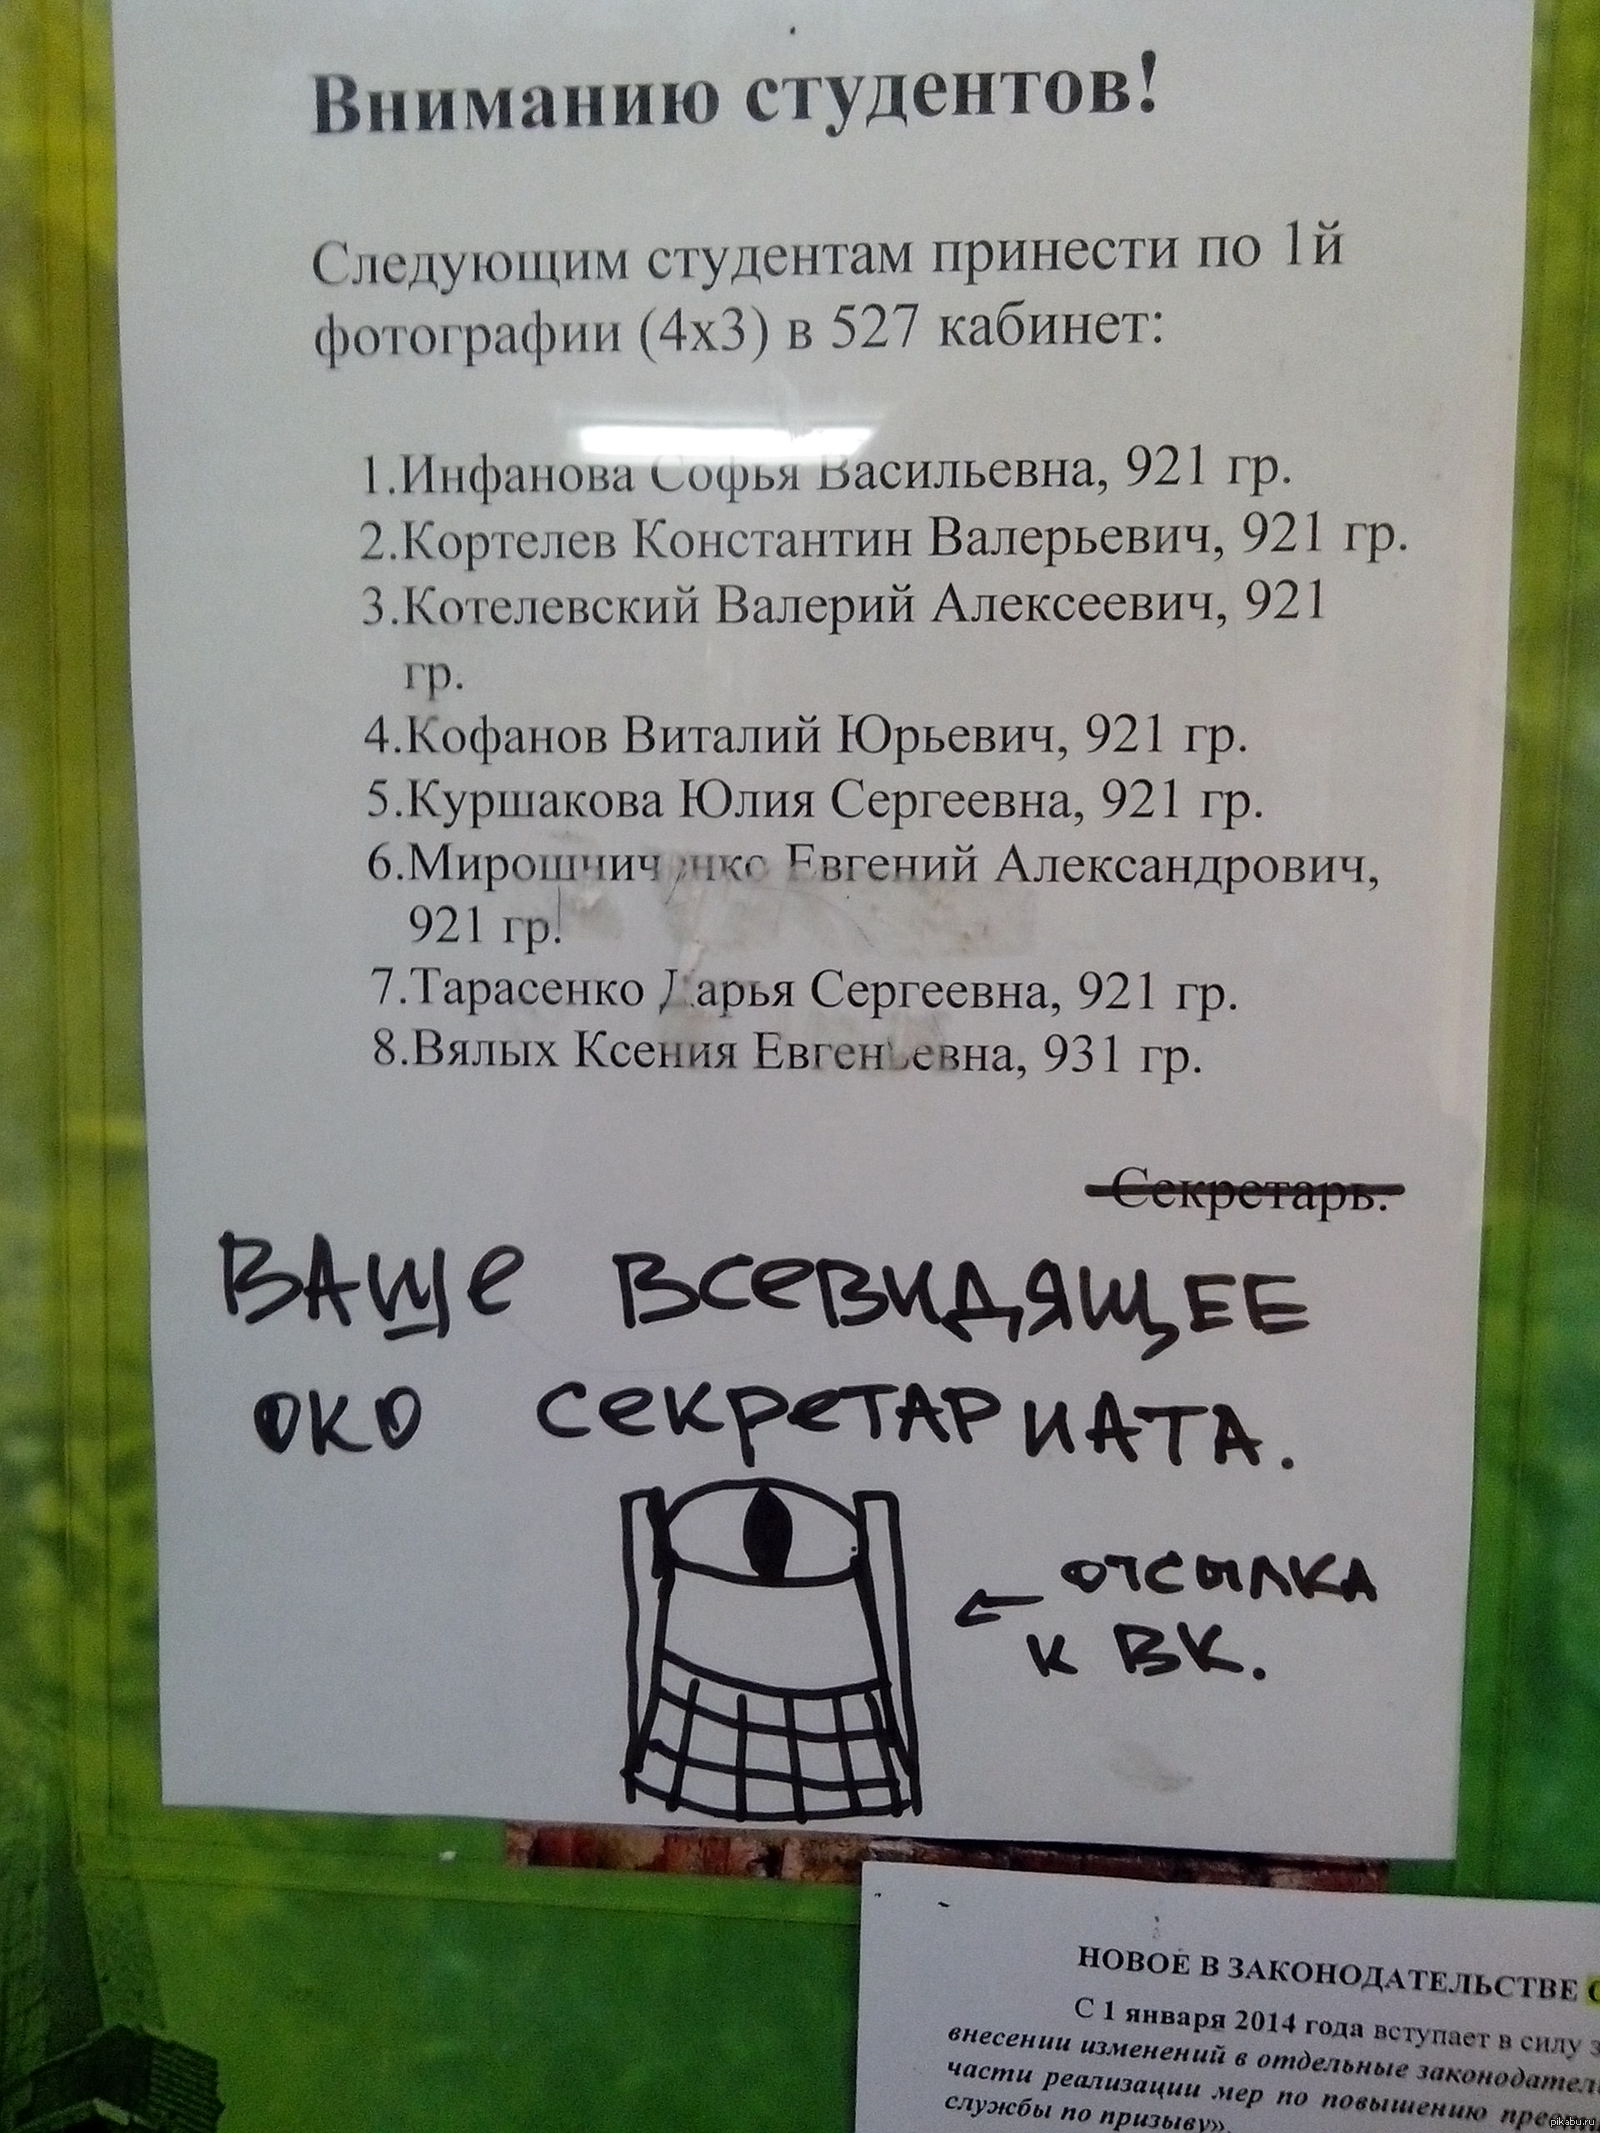 Вниманию студентов!
Следующим студентам принести по 1й
фотографии (4х3) в 527 кабинет:
1.Инфанова Софья Васильевна, 921 гр.
2.Кортелев Константин Валерьевич, 921 гр.
3.Котелевский Валерий Алексеевич, 921
гр.
4.Кофанов Виталий Юрьевич, 921 гр.
5.Куршакова Юлия Сергеевна, 921 гр.
6.Мирошниченко Евгений Александрович,
921 гр.
7.Тарасенко Дарья Сергеевна, 921 гр.
8.Вялых Ксения Евгеньевна, 931 гр.
Секретарь.
ВАШе ВСеВИДЯЩЕЕ
ОКО СеКРеТАРИАТА.
← ОТСЫЛКА
К ВК.
НОВОЕ В ЗАКОНОДАТЕЛЬСТВЕ
С 1 января 2014 года вступает в силу
внесении изменений в отдельные
части реализации мер по повышению
службы по призыву».
pikabu.ru